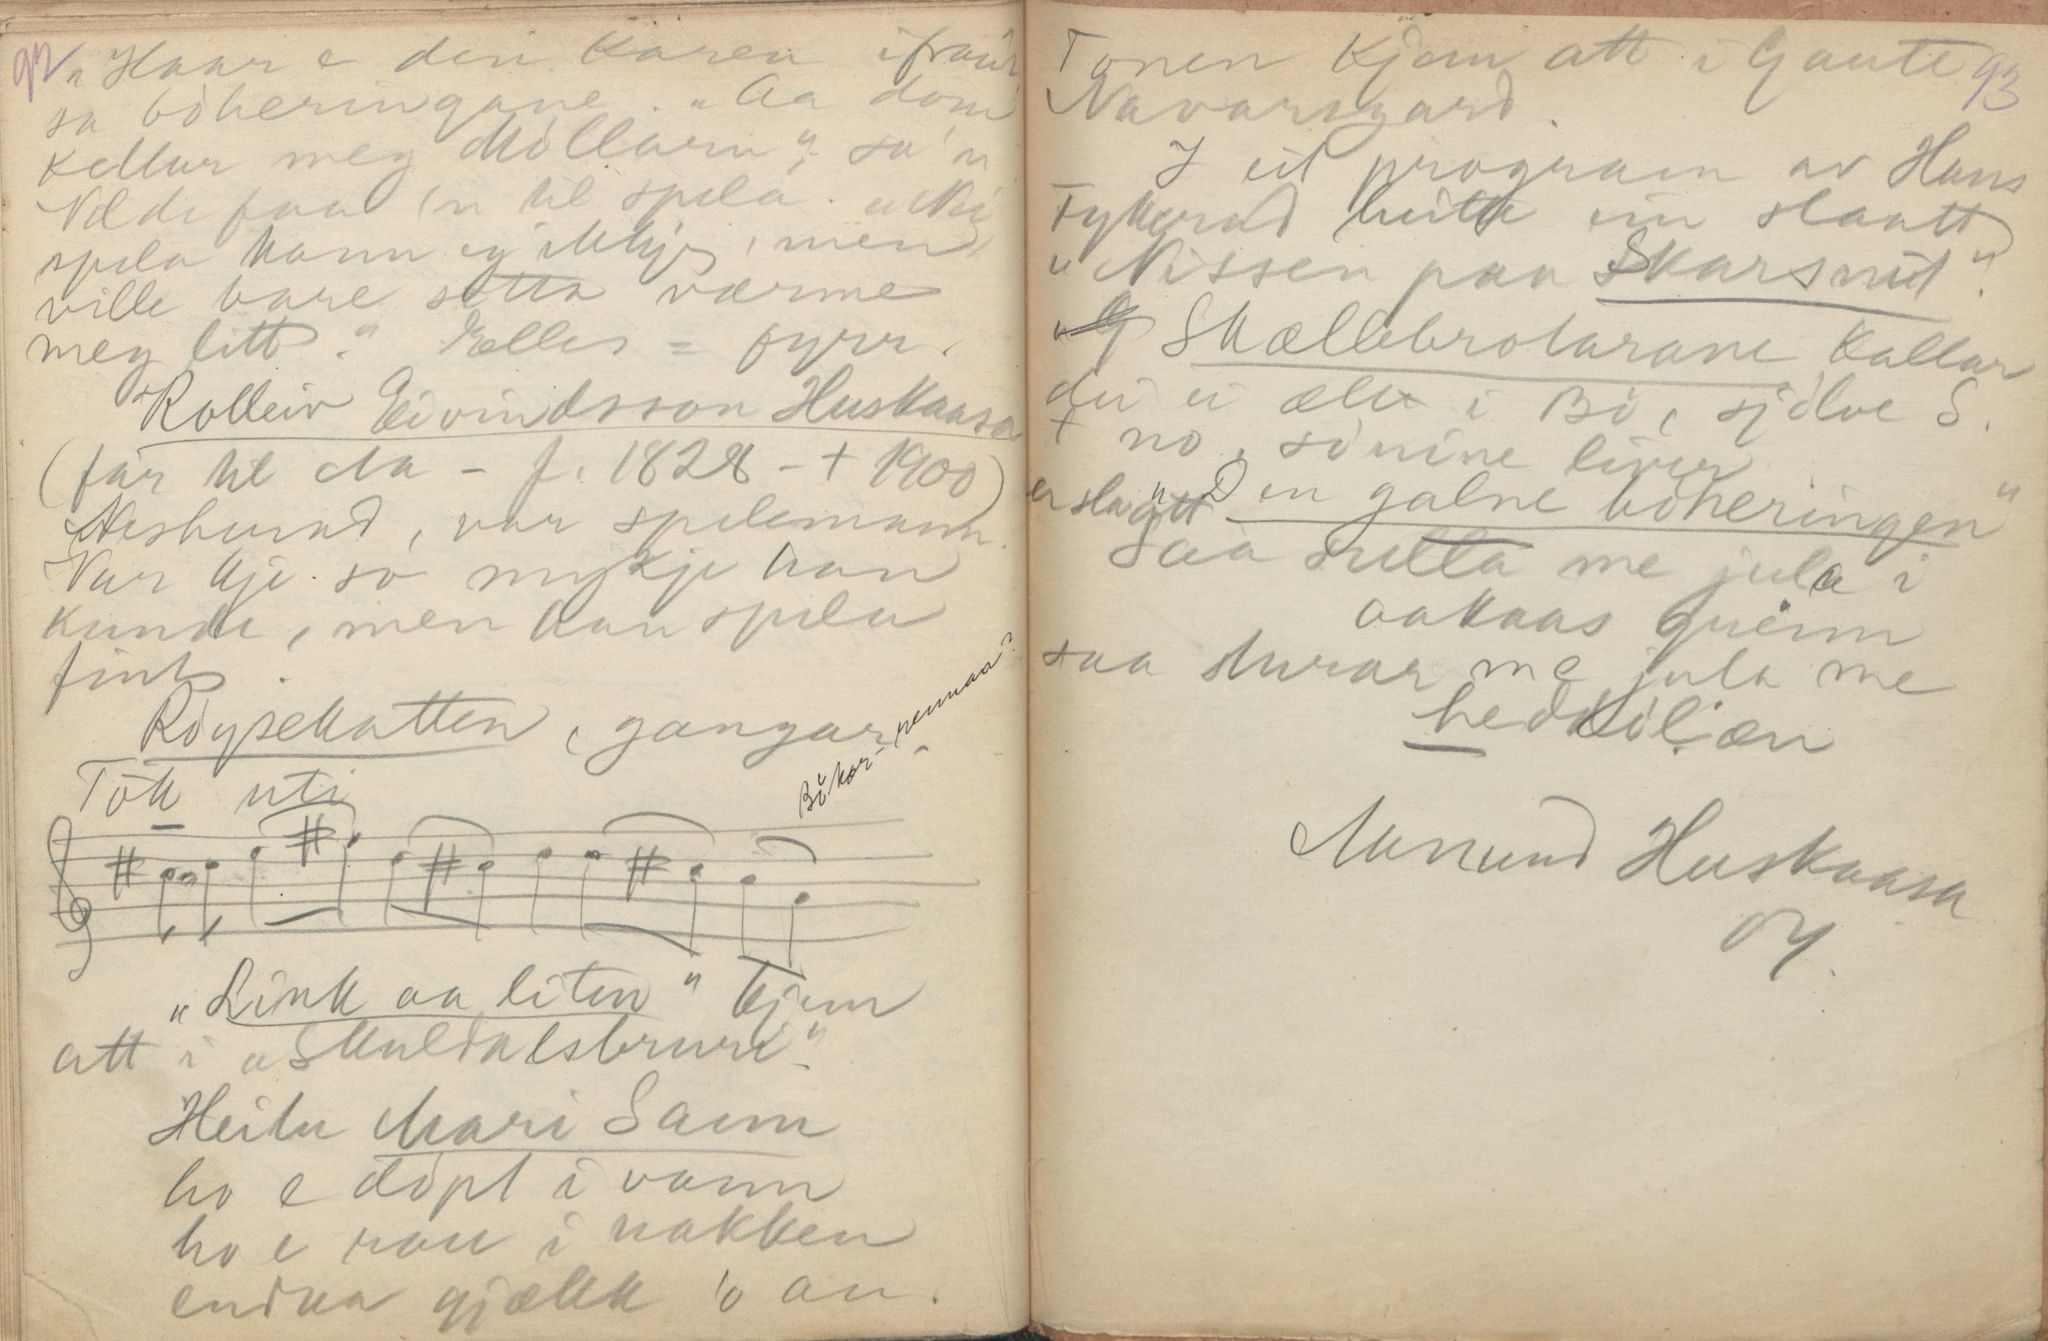 92
„Haar e den karen ifraa"
sa böheringane. „Aa dom
kallar meg Möllarn", sa 'n
Vilde faa 'n til spela. „Nei
spela kann eg ikkje, men
ville bare sitta værme
meg litt." Elles = fyrr.
Rolleiv Eivindsson Huskaasa
(far til Aa – f. 1828 – + 1900)
Nesherad, var spelemann.
Var kje so mykje han
kunde, men han spela
fint.
Röysekatten, gangar.
Bökar-nemnaa?
Tök uti
„Link aa liten" kjem
att i „Skuldalsbruri"
Heitu Mari Saum
ho e döpt i vann
ho e rau i nakken
endaa gjækk 'o an.
93
Tonen kjem att i Gaute
Navarsgard.
I eit program av Hans
Fykerud heitte ein slaatt
„Nissen paa Skarsnut".
Skællebrotarane kallar
dei ei ætt i Bö, sjölve S.
+ no, sönine liver
er slaatt „Den galne böheringen"
Saa sulla me jula i
aakaas greinn
saa sturar me jula me
hedkiljæn
Aamund Huskaasa